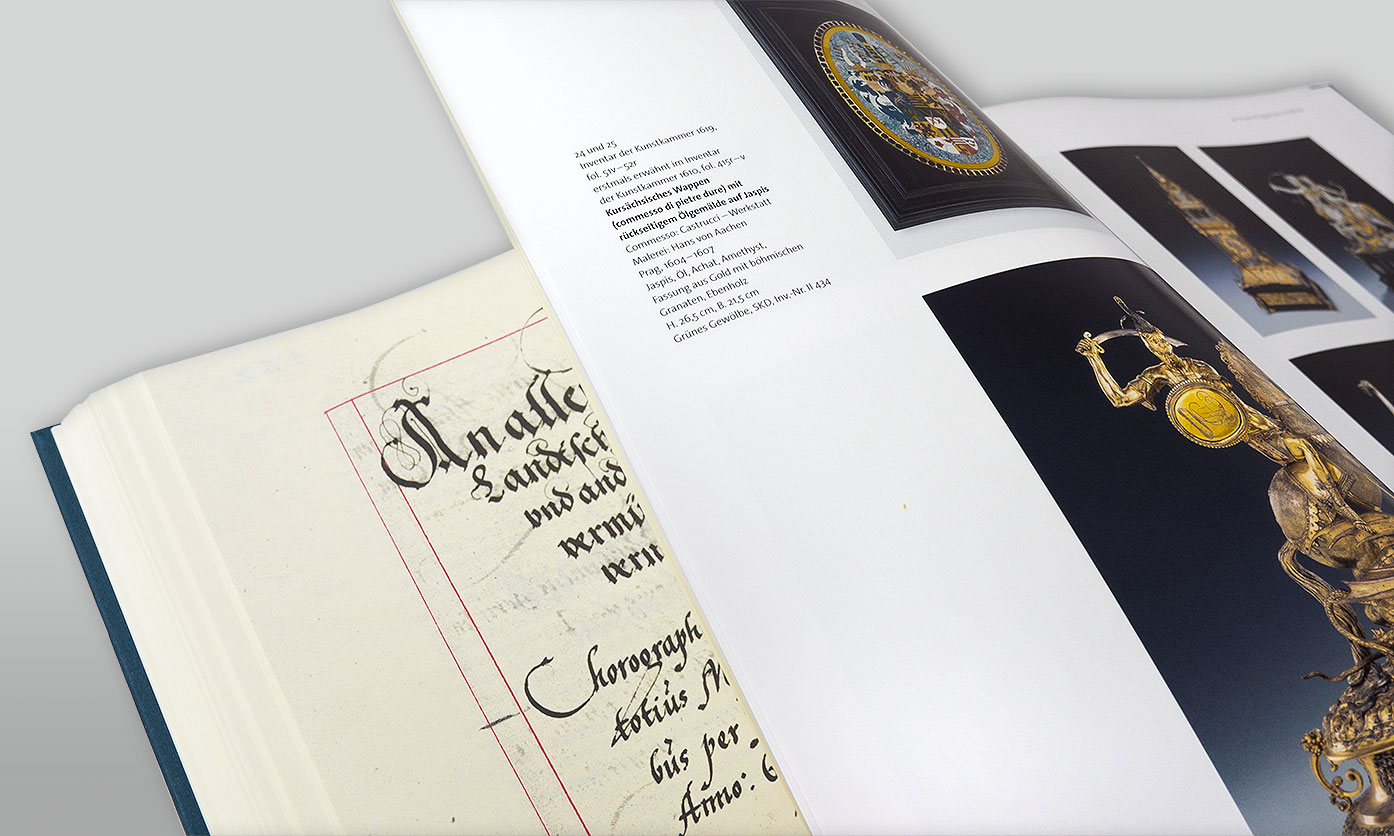 24 und 25
Inventar der Kunstkammer 1619,
fol. 51v–52r
erstmals erwähnt im Inventar
der Kunstkammer 1610, fol. 415r–v
Kursächsisches Wappen
(commesso di pietre dure) mit
rückseitigem Ölgemälde auf Jaspis
Commesso: Castrucci – Werkstatt
Malerei: Hans von Aachen
Prag, 1604–1607
Jaspis, Öl, Achat, Amethyst,
Fassung aus Gold mit böhmischen
Granaten, Ebenholz
H. 26,5 cm, B. 21,5 cm
Grünes Gewölbe, SKD, Inv.-Nr. II 434
An alle
Landtsch
vnd and
vermi
vern
Chorograph
totius M
bus per
Anno: 6